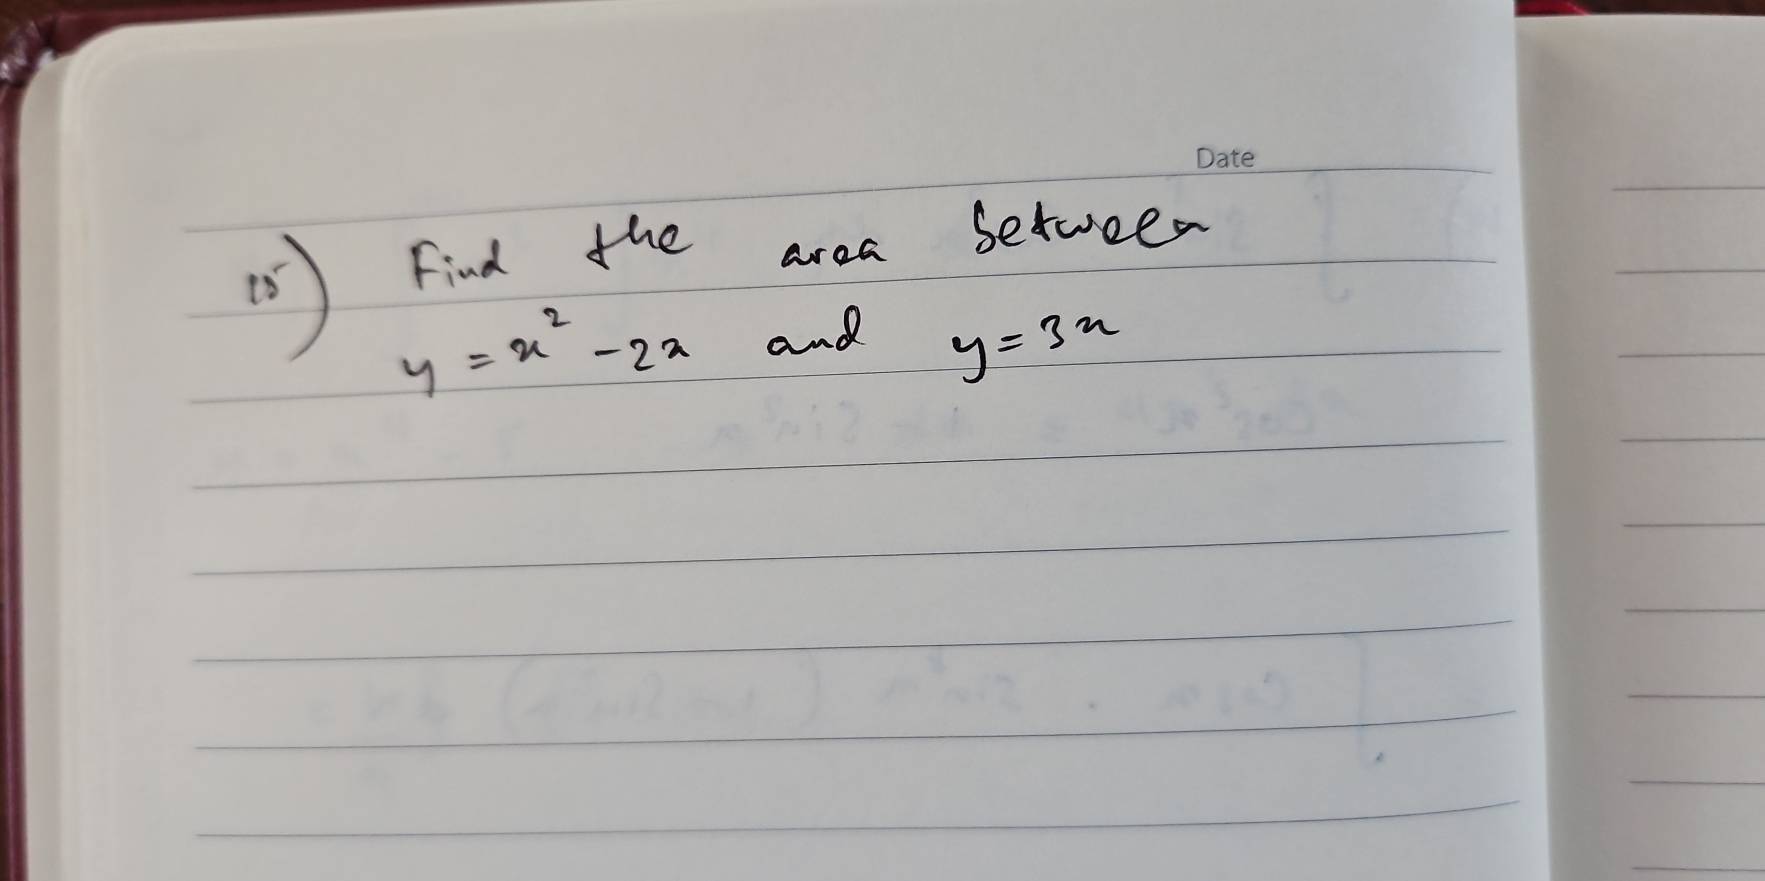 Date
15) Find the area between
y = x² - 2x and y = 3x